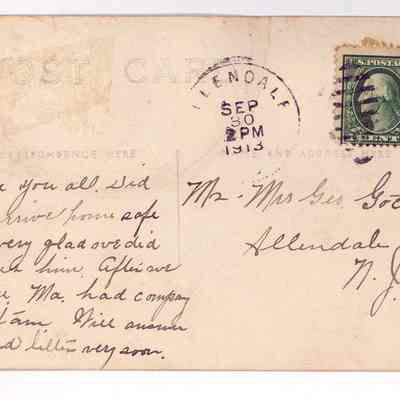 POST CAR
LLENDALE
SEP
30
2 PM
1913
U.S. POSTAGE
CORRESPONDENCE HERE
NAME AND ADDRESS HERE
you all. Did
arrive home safe
very glad we did
him. After we
Ma. had company
Will answer
letter very soon.
Mr Mrs Geo
Allendale
N. J.